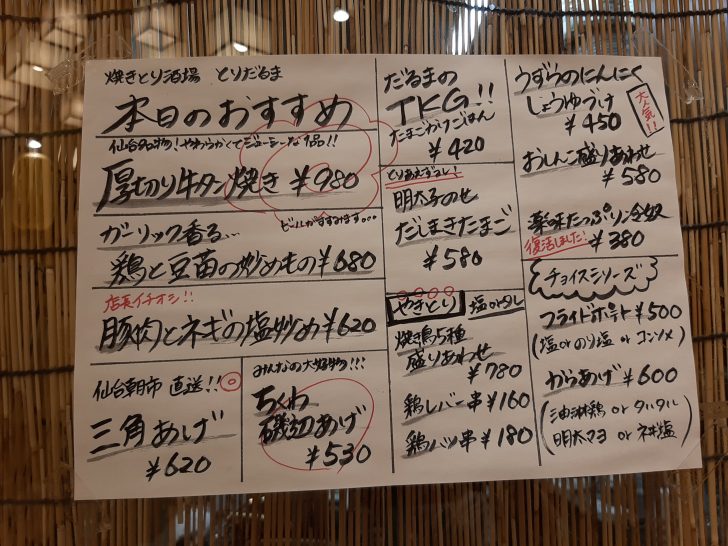 焼きとり酒場 とりだるま
本日のおすすめ
仙台名物!やわらかくてジューシーな1品!!
厚切り牛タン焼き ¥980
ビールがすすみます...
ガーリック香る...
鶏と豆苗の炒めもの ¥680
店長イチオシ!!
豚肉とネギの塩炒め ¥620
仙台朝市 直送!!
三角あげ
¥620
みんなの大好物!!!
ちくわ
磯辺あげ
¥530
だるまの
TKG!!
たまごかけごはん
¥420
とりあえずコレ!
明太子のせ
だしまきたまご
¥580
やきとり 塩orタレ
焼き鳥5種
盛りあわせ
¥780
鶏レバー串 ¥160
鶏ハツ串 ¥180
うずらのにんにく
しょうゆづけ
¥450
大人気!!
おしんこ盛りあわせ
¥580
薬味たっぷりン冷奴
復活しました! ¥380
チョイスシリーズ
フライドポテト ¥500
(塩orのり塩 or コンソメ)
からあげ ¥600
(油淋鶏 or タルタル
明太マヨ or ネギ塩)